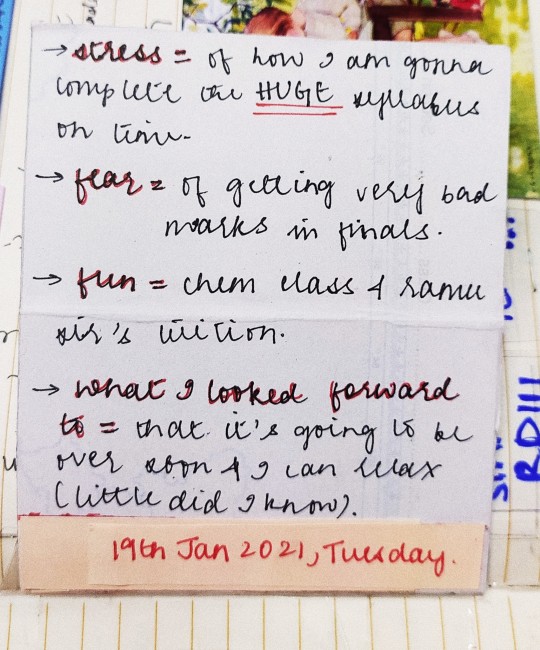 → stress = of how I am gonna
complete the HUGE syllabus
on time.
→ fear = of getting very bad
marks in finals.
→ fun = chem class & ramu
sir's tuition.
→ what I looked forward
to = that it's going to be
over soon & I can relax
(little did I know).
19th Jan 2021, Tuesday.